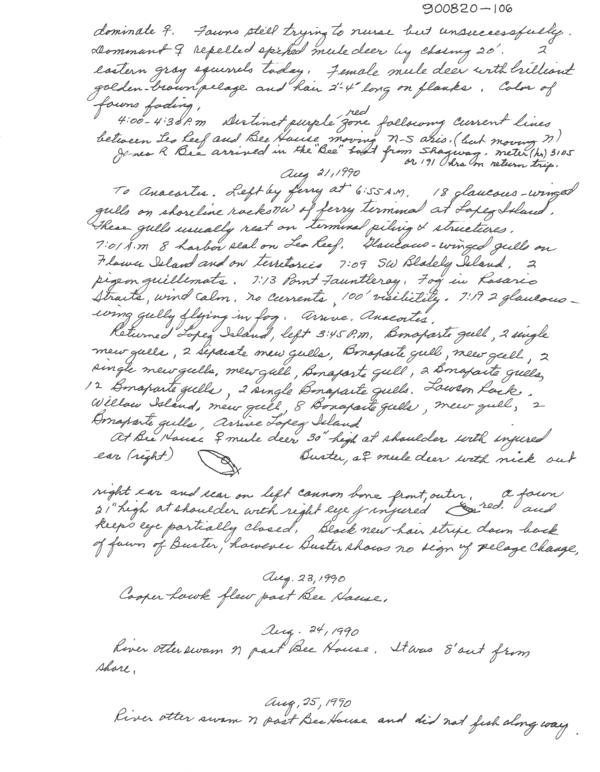 900820-106
dominate ♀. Fawns still trying to nurse but unsuccessfully.
Dominant ♀ repelled spiked mule deer by chasing 20'. 2
eastern gray squirrels today. Female mule deer with brilliant
golden-brown pelage and hair 2"-4" long on flanks. Color of
fawns fading.
4:00-4:30 P.M. Distinct purple red zone following current lines
between Leo Reef and Bee House moving N-S axis. (but moving N)
R Bee arrived in the "Bee" boat from Skagway. meter (hr) 3105
or 191 hrs on return trip.
Aug 21, 1990
To Anacortes. Left by ferry at 6:55 A.M. 18 glaucous-winged
gulls on shoreline rocks NW of ferry terminal at Lopez Island.
These gulls usually rest on terminal piling & structures.
7:01 A.M 8 harbor seal on Leo Reef. Glaucous-winged gulls on
Flower Island and on territories 7:09 SW Blakely Island, 2
pigeon guillemots. 7:13 Point Fauntleroy. Fog in Rosario
Straits, wind calm, no currents, 100' visibility. 7:19 2 glaucous-
wing gulls flying in fog. Arrive Anacortes.
Returned Lopez Island, left 3:45 P.M. Bonaparte gull, 2 single
mew gulls, 2 separate mew gulls, Bonaparte gull, mew gull, 2
single mew gulls, mew gull, Bonaparte gull, 2 Bonaparte gulls,
12 Bonaparte gulls, 2 single Bonaparte gulls. Lawson Rock.
Willow Island, mew gull, 8 Bonaparte gulls, mew gull, 2
Bonaparte gulls, Arrive Lopez Island
At Bee House ♀ mule deer 30" high at shoulder with injured
ear (right) Buster, a ♀ mule deer with nick out
right ear and scar on left cannon bone front, outer. a fawn
21" high at shoulder with right eye injured red. and
keeps eye partially closed. Black new hair stripe down back
of fawn of Buster, however Buster shows no sign of pelage change.
Aug. 23, 1990
Cooper hawk flew past Bee House.
Aug. 24, 1990
River otter swam N past Bee House. It was 8' out from
shore.
Aug, 25, 1990
River otter swam N past Bee House and did not fish along way.